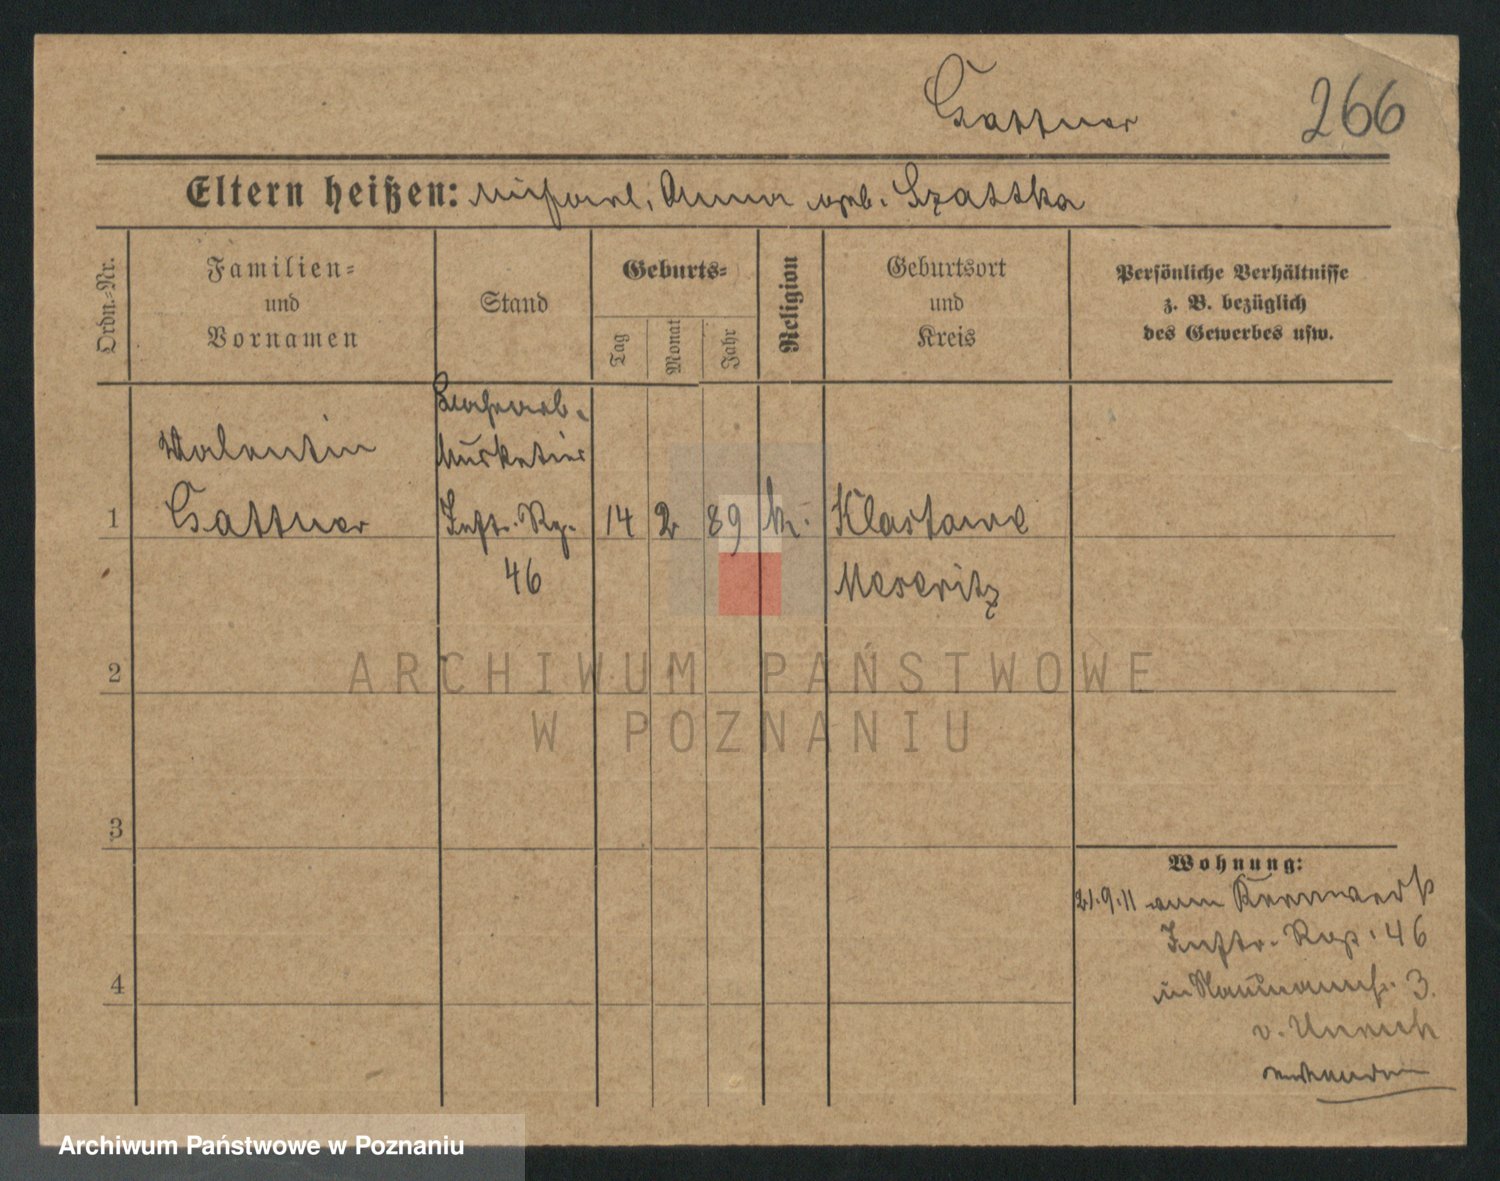 Gattner 266
Eltern heißen: Michael, Anna geb. Szattka
Ordn.-Nr.
Familien-
und
Vornamen
Stand
Geburts-
Tag
Monat
Jahr
Religion
Geburtsort
und
Kreis
Persönliche Verhältnisse
z. B. bezüglich
des Gewerbes usw.
Valentin
Musketier
1 Gattner Inftr. Rg. 14 2 89 k. Klastawe
46 Meseritz
2
3
4
Wohnung:
21.9.11 zum Kernwerk
Inftr. Reg. 46
in 3.
v. Unruh
ARCHIWUM PAŃSTWOWE
W POZNANIU
Archiwum Państwowe w Poznaniu